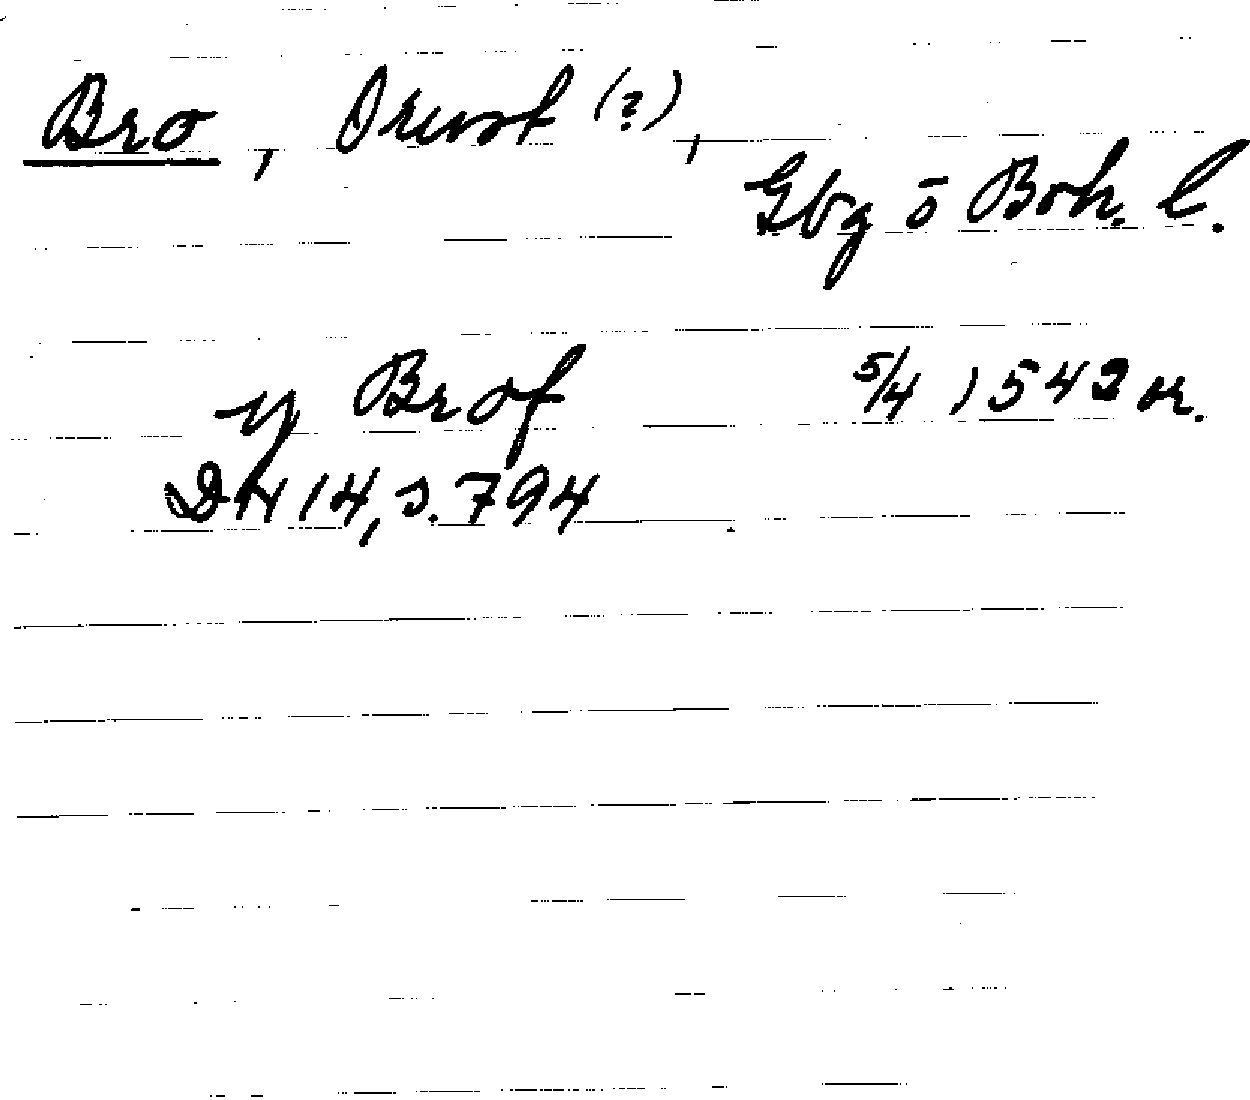 Bro, Orust (?),
Gbg ō Boh. l.
y Brof 5/4 1542 or.
DN 14, s. 794